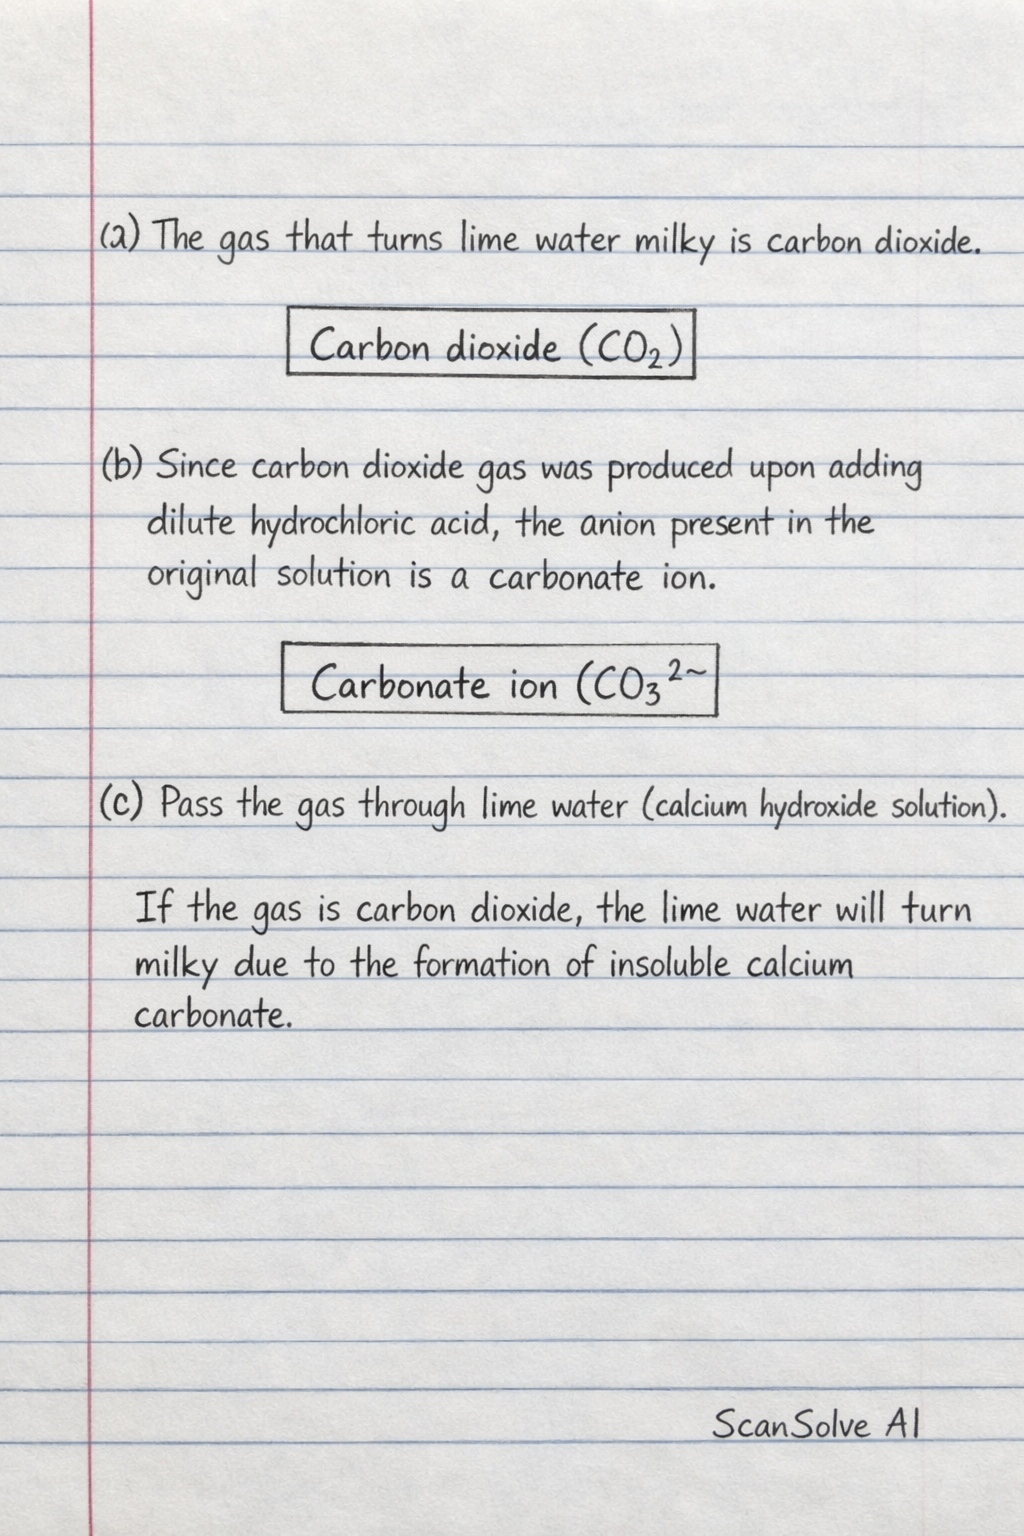 (a) The gas that turns lime water milky is carbon dioxide.
Carbon dioxide (CO₂)
(b) Since carbon dioxide gas was produced upon adding
dilute hydrochloric acid, the anion present in the
original solution is a carbonate ion.
Carbonate ion (CO₃²~
(c) Pass the gas through lime water (calcium hydroxide solution).
If the gas is carbon dioxide, the lime water will turn
milky due to the formation of insoluble calcium
carbonate.
ScanSolve AI